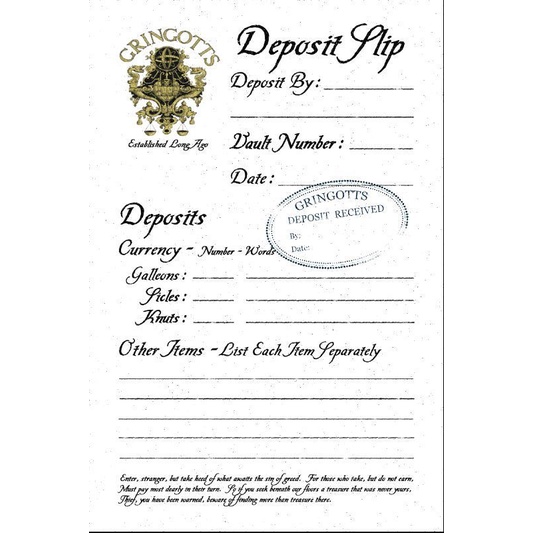 GRINGOTTS
Established Long Ago
Deposit Slip
Deposit By:
Vault Number:
Date:
GRINGOTTS
DEPOSIT RECEIVED
By:
Date:
Deposits
Currency - Number - Words
Galleons:
Sicles:
Knuts:
Other Items - List Each Item Separately
Enter, stranger, but take heed of what awaits the sin of greed. For those who take, but do not earn,
Must pay most dearly in their turn. So if you seek beneath our floors a treasure that was never yours,
Thief, you have been warned, beware of finding more than treasure there.